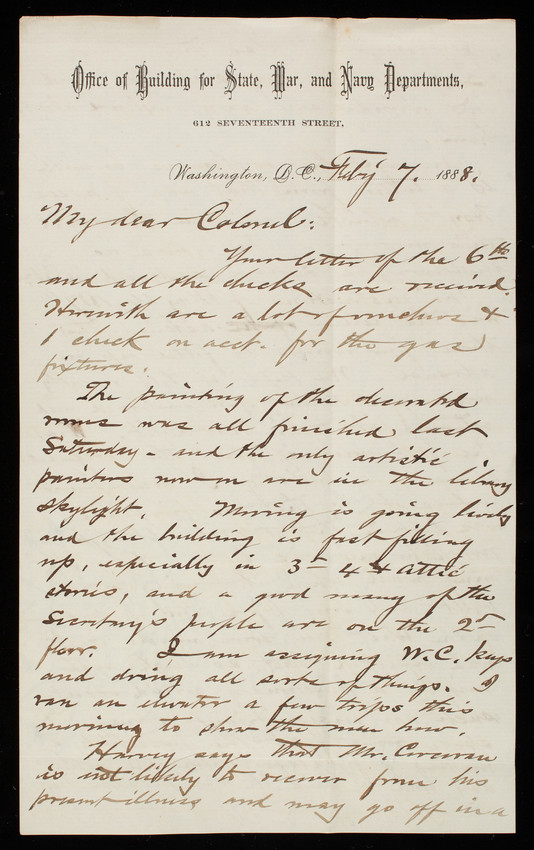 Office of Building for State, War, and Navy Departments,
612 SEVENTEENTH STREET,
Washington, D.C., Feb'y 7. 1888.
My dear Colonel:
Your letter of the 6th
and all the checks are received.
Herewith are a lot of vouchers &
1 check on acct. for the gas
fixtures.
The painting of the decorated
rooms was all finished last
Saturday - and the only artistic
painters now on are in the library
skylight. Moving is going lively
and the building is fast filling
up, especially in 3d 4 & attic
stories, and a good many of the
Secretary's people are on the 2d
floor. I am assigning W.C. keys
and doing all sorts of things. I
ran an elevator a few trips this
morning to show the man how.
Harvey says that Mr. Corcoran
is not likely to recover from his
present illness and may go off in a